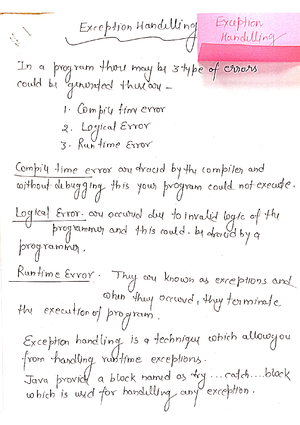 Exception Handelling
Exception
Handelling
In a program there may be 3 type of errors
could be generated these are -
1. Compile time error
2. Logical Error
3. Runtime Error
Compile time error are traced by the compiler and
without debugging this your program could not execute.
Logical Error. are occured due to invalid logic of the
programmer and this could be traced by a
programmer.
Runtime Error. They are known as exceptions and
when they occured, they terminate
the execution of program.
Exception handling is a technique which allow you
from handling runtime exceptions.
Java provide a block named as try...catch...block
which is used for handelling any exception.